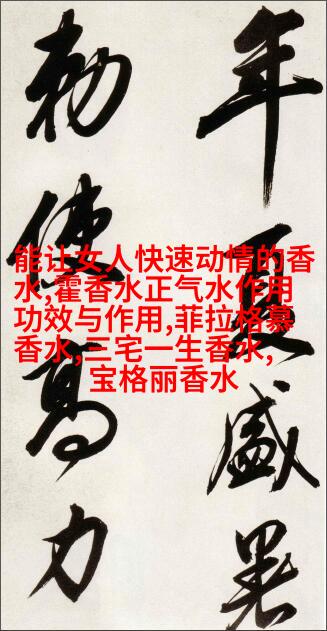 年夏盛暑
勅使高力
能让女人快速动情的香
水,霍香水正气水作用
功效与作用,菲拉格慕
香水,三宅一生香水,
宝格丽香水